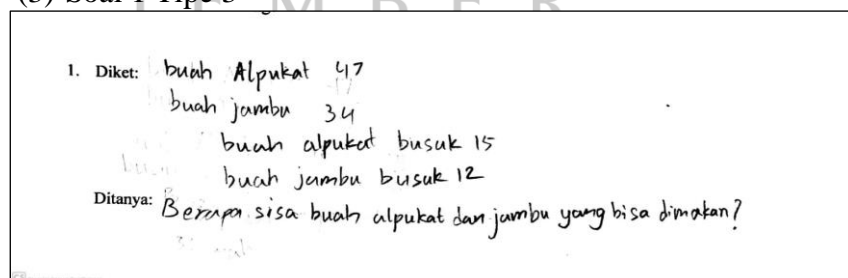 1. Diket: buah Alpukat 47
buah jambu 34
buah alpukat busuk 15
buah jambu busuk 12
Ditanya: Berapa sisa buah alpukat dan jambu yang bisa dimakan?